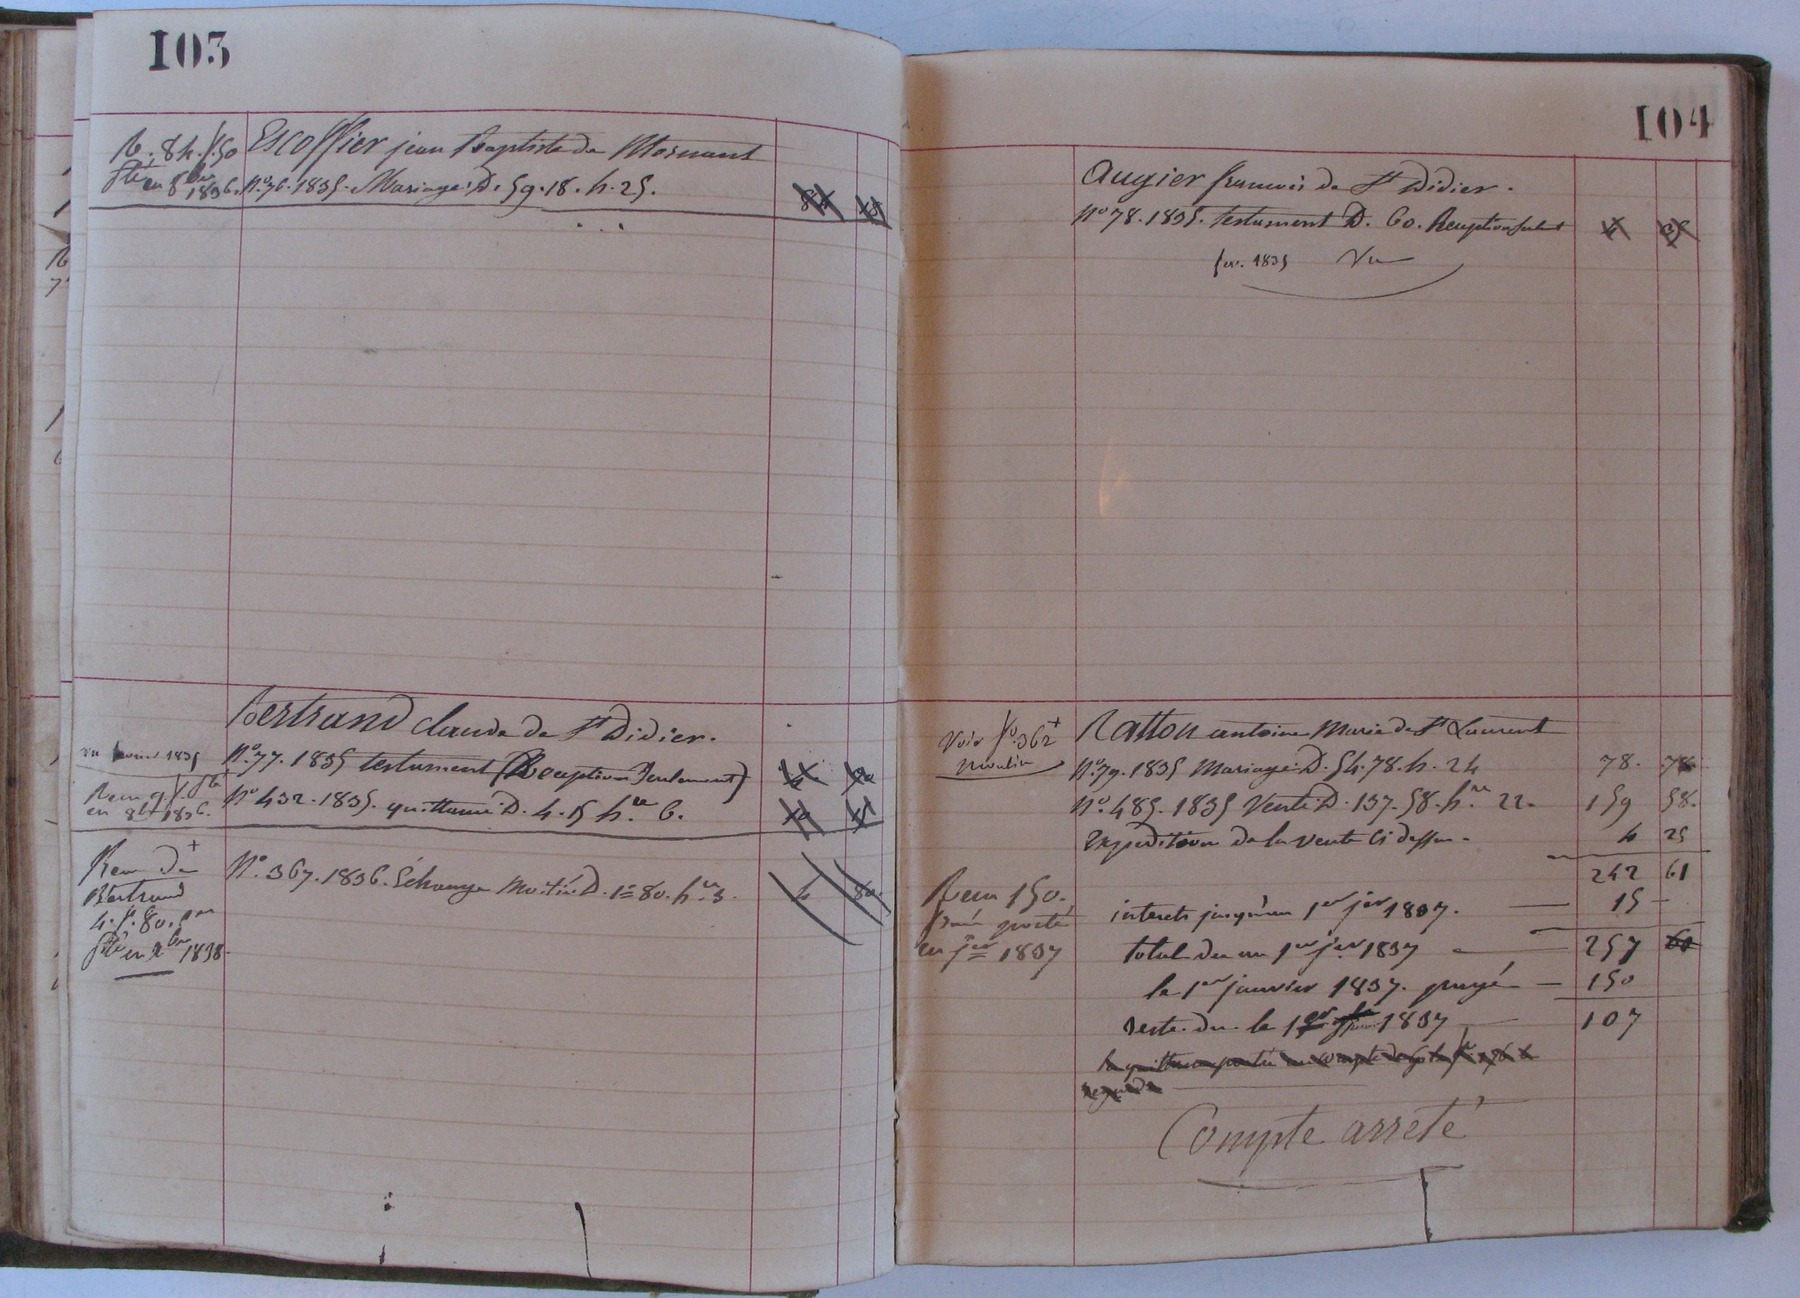 103
R. 84. f. 50 Escoffier jean Baptiste de Mornant
en 8bre 1836. No. 76. 1835. Mariage. D. 59. 18. h. 25.
Bertrand claude de St Didier.
No. 77. 1835 testament (Reception Seulement)
No 432. 1835. quittance D. 4. 15 hre 6.
en 8bre 1836.
Reçu de
Bertrand
4. f. 80.
1838.
No. 367. 1836. Échange Moitié D. 1=80. hre 3. 4 80.
104
Augier francois de St Didier.
No 78. 1835. testament D. 60. Reception Seulemt
fev. 1835 Vu
Voir fo. 362
Moulin
Ratton antoine Marie de St Laurent
No. 79. 1835 Mariage. D. 54. 78. h. 24 78. 78
No. 485. 1835 Vente D. 137. 58. hre 22. 159 58.
Expedition de la vente Ci dessus. 4 25
242 61
Reçu 150.
porté
en jer 1837
interets jusqu'au 1er jer 1837. 15
total du au 1er jer 1837 257
le 1er janvier 1837. payé 150
reste du le 1er 1837 107
Compte arreté